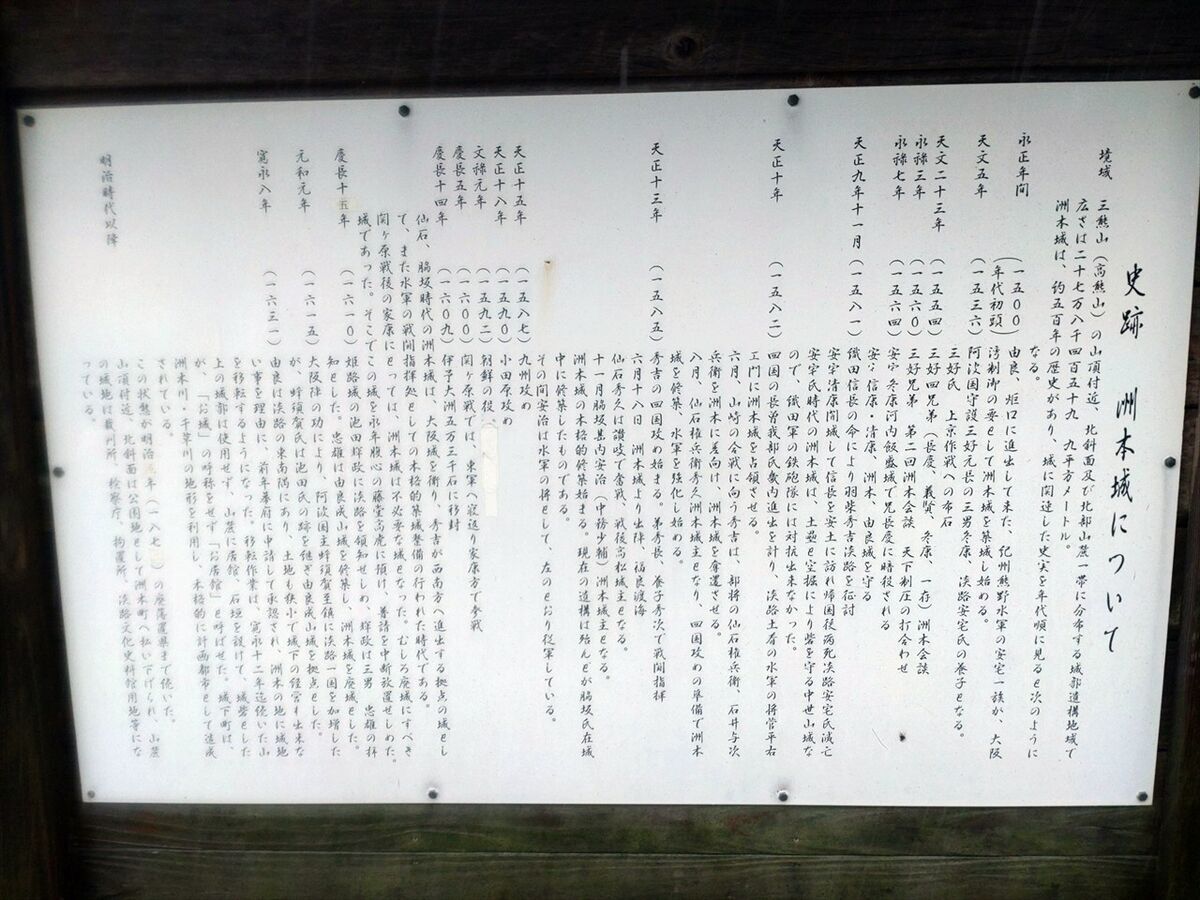 史跡 洲本城について
境域 三熊山（高熊山）の山頂付近、北斜面及び北部山麓一帯に分布する城郭遺構地域で
広さは二十七万八千四百五十九・九平方メートル。
洲本城は、約五百年の歴史があり、城に関連した史実を年代順に見ると次のように
なる。
永正年間（一五〇〇年代初頭）由良、炬口に進出して来た、紀州熊野水軍の安宅一族が、大阪
湾制御の要として洲本城を築城し始める。
天文五年（一五三六）阿波国守護三好元長の三男冬康、淡路安宅氏の養子となる。
三好氏 上京作戦への布石
天文二十三年（一五五四）三好四兄弟（長慶、義賢、冬康、一存）洲本会談
永禄三年（一五六〇）三好兄弟 第二回洲本会談 天下制圧の打合わせ
永禄七年（一五六四）安宅冬康河内飯盛城で兄長慶に暗殺される
安宅信康・清康、洲本、由良城を守る
天正九年十一月（一五八一）織田信長の命により羽柴秀吉淡路を征討
安宅清康開城して信長を安土に訪れ帰国後病死淡路安宅氏滅亡
安宅氏時代の洲本城は、土塁と空掘により砦を守る中世山城な
ので、織田軍の鉄砲隊には対抗出来なかった。
天正十年（一五八二）四国の長曽我部氏畿内進出を計り、淡路土着の水軍の将菅平右
エ門に洲本城を占領させる。
六月、山崎の合戦に向う秀吉は、部将の仙石権兵衛、石井与次
兵衛を洲本に差向け、洲本城を奪還させる。
八月、仙石権兵衛秀久洲本城主となり、四国攻めの準備で洲本
城を修築、水軍を強化し始める。
天正十三年（一五八五）秀吉の四国攻め始まる。弟秀長、養子秀次で戦闘指揮
六月十八日 洲本城より出陣、福良渡海
仙石秀久は讃岐で奮戦、戦後高松城主となる。
十一月脇坂甚内安治（中務少輔）洲本城主となる。
洲本城の本格的修築始まる。現在の遺構は殆んどが脇坂氏在城
中に修築したものである。
その間安治は水軍の将として、左のとおり従軍している。
天正十五年（一五八七）九州攻め
天正十八年（一五九〇）小田原攻め
文禄元年（一五九二）朝鮮の役、
慶長五年（一六〇〇）関ヶ原戦では、東軍へ寝返り家康方で参戦
慶長十四年（一六〇九）伊予大洲五万三千石に移封
仙石、脇坂時代の洲本城は、大阪城を衛り、秀吉が西南方へ進出する拠点の城とし
て、また水軍の戦闘指揮処としての本格的築城整備の行われた時代である。
関ヶ原戦後の家康にとっては、洲本城は不必要な城となった。むしろ廃城にすべき
城であった。そこでこの城を永年腹心の藤堂高虎に預け、普請を中断放置せしめた。
慶長十五年（一六一〇）姫路城の池田輝政に淡路を領知せしめ、輝政は三男 忠雄の拝
知とした。忠雄は由良成山城を修築し、洲本城を廃城とした。
元和元年（一六一五）大阪陣の功により、阿波国主蜂須賀至鎮に淡路一国を加増した
が、蜂須賀氏は池田氏の跡を継ぎ由良成山城を拠点とした。
寛永八年（一六三一）由良は淡路の東南隅にあり、土地も狭小で城下の経営も出来な
い事を理由に、前年幕府に申請して承認され、洲本の地に城地
を移転するようになった。移転作業は、寛永十二年迄続いた山
上の城郭は使用せず、山麓に居館、石垣を設けて、城砦とした
が、「お城」の呼称をせず「お居館」と呼ばせた。城下町は、
洲本川・千草川の地形を利用し、本格的な計画都市として造成
されている。
明治時代以降 この状態が明治 年（一八七 ）の廃藩置県まで続いた。
山頂付近、北斜面は公園地として洲本町へ払い下げられ、山麓
の城地は裁判所、検察庁、拘置所、淡路文化史料館用地等にな
っている。